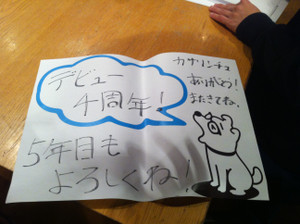 デビュー
4周年!
カサリンチュ
ありがとう!
またきてね。
5年目も
よろしくね!